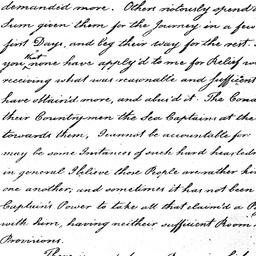 demanded more. Others riotously spend
Sum given them for the Journey in a few
first Days, and beg their way for the rest.
you that none have apply'd to me for Relief
receiving what was reasonable and sufficient
have obtain'd more, and abus'd it. The
their Countrymen the Sea Captains at the
towards them, I cannot be accountable for
may be some Instances of such hard hearted
in general I believe those People are rather
one another; and sometimes it has not been
Captain's Power to take all that claim'd a
with him, having neither sufficient Room
Provisions.